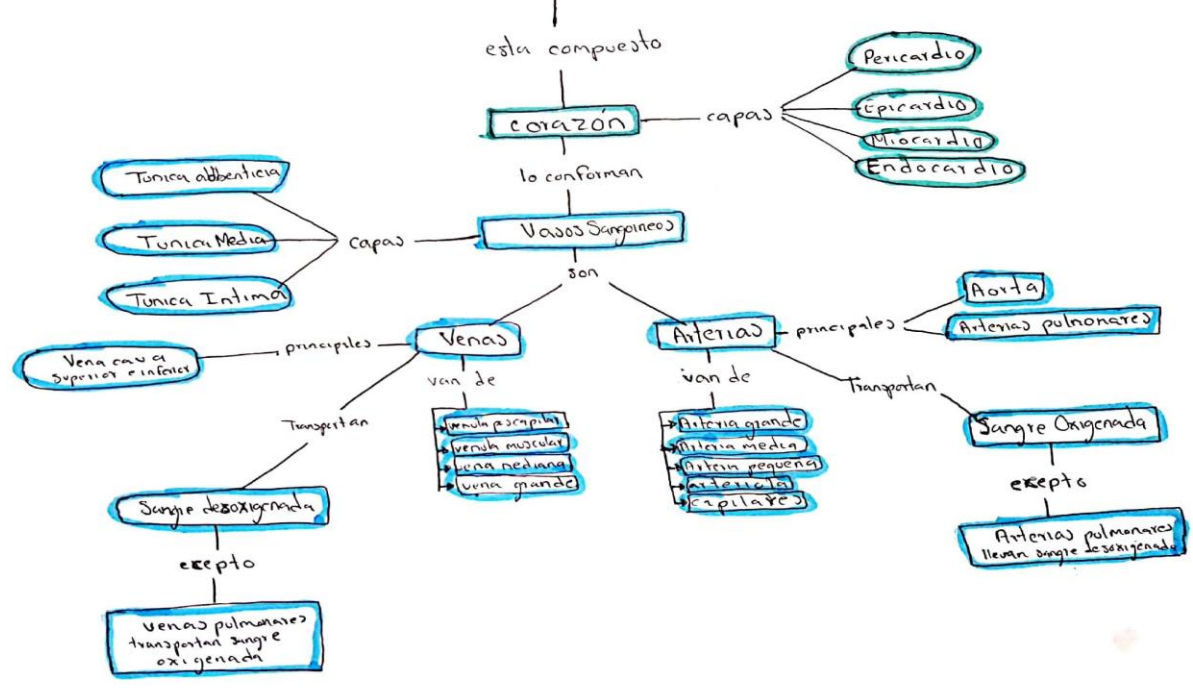 esta compuesto
corazón
capas
Pericardio
Epicardio
Miocardio
Endocardio
lo conforman
Vasos Sanguineos
capas
Tunica adbenticia
Tunica Media
Tunica Intima
son
Venas
principales
Vena cava
superior e inferior
van de
venula poscapilar
venula muscular
vena mediana
vena grande
Transportan
Sangre desoxigenada
exepto
venas pulmonares
transportan sangre
oxigenada
Arterias
principales
Aorta
Arterias pulmonares
van de
Arteria grande
Arteria media
Arteria pequeña
arteriola
capilares
Transportan
Sangre Oxigenada
exepto
Arterias pulmonares
llevan sangre desoxigenada